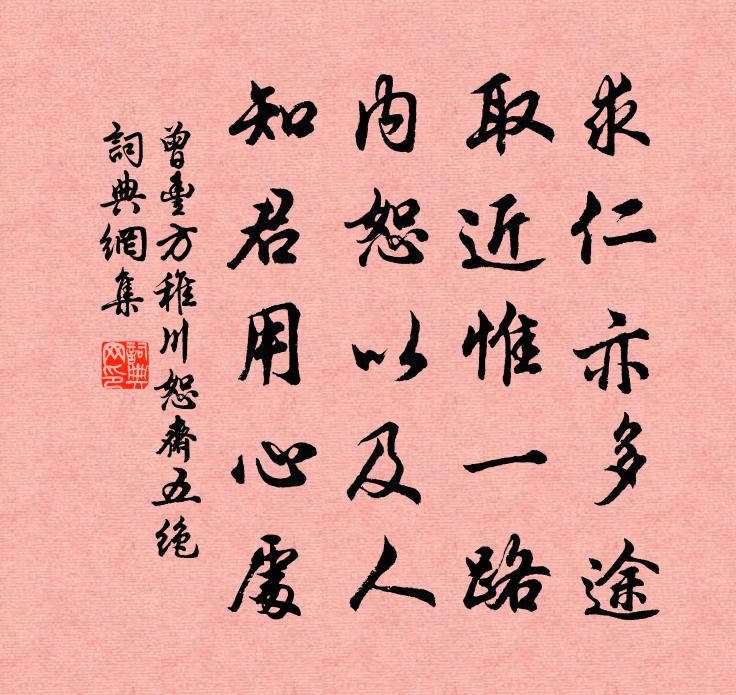 求仁亦多途
取近惟一路
内恕以及人
知君用心處
曾豐方稚川恕齋五絶
詞典網集
詞典網印